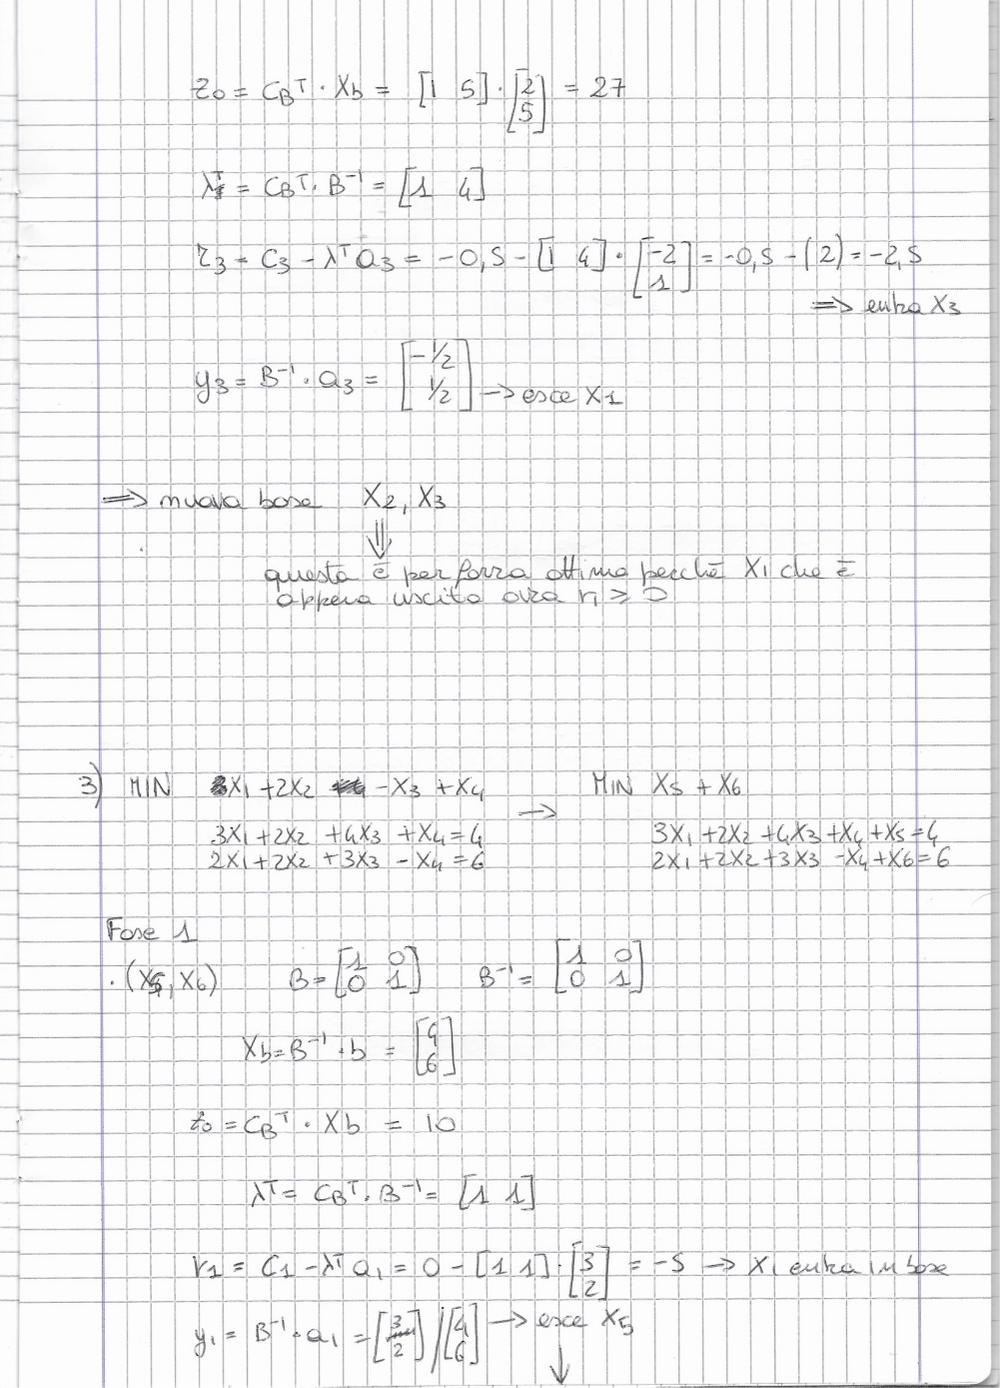 z0 = CB^T · Xb = [1 5] · [2 5] = 27
λ^T = CB^T · B^-1 = [1 4]
r3 = C3 - λ^T a3 = -0,5 - [1 4] · [-2 1] = -0,5 - (2) = -2,5
=> entra X3
y3 = B^-1 · a3 = [-1/2 1/2] -> esce X1
=> nuova base X2, X3
questa è per forza ottima perchè X1 che è
appena uscito avrà r1 ≥ 0
3) MIN X1 + 2X2 - X3 + X4 -> MIN X5 + X6
3X1 + 2X2 + 4X3 + X4 = 4 3X1 + 2X2 + 4X3 + X4 + X5 = 4
2X1 + 2X2 + 3X3 - X4 = 6 2X1 + 2X2 + 3X3 - X4 + X6 = 6
Fase 1
· (X5, X6) B = [1 0 0 1] B^-1 = [1 0 0 1]
Xb = B^-1 · b = [4 6]
z0 = CB^T · Xb = 10
λ^T = CB^T · B^-1 = [1 1]
r1 = C1 - λ^T a1 = 0 - [1 1] · [3 2] = -5 -> X1 entra in base
y1 = B^-1 · a1 = [3 2] / [4 6] -> esce X5